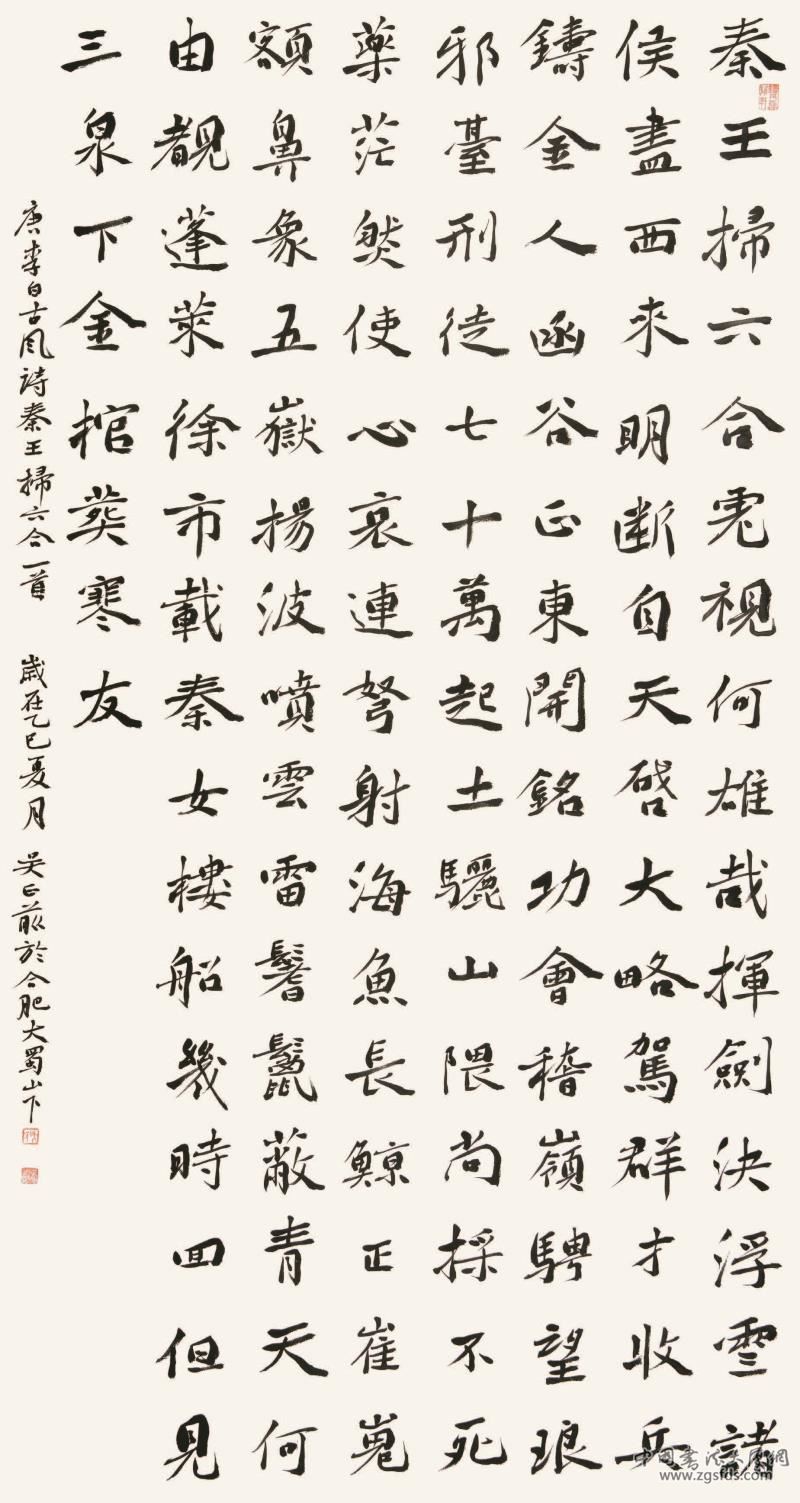 秦王掃六合虎視何雄哉揮劍決浮雲諸
侯盡西來明斷自天啓大略駕群才收兵
鑄金人函谷正東開銘功會稽嶺騁望琅
邪臺刑徒七十萬起土驪山隈尚採不死
藥茫然使心哀連弩射海魚長鯨正崔嵬
額鼻象五嶽揚波噴雲雷鬐鬣蔽青天何
由覩蓬萊徐市載秦女樓船幾時回但見
三泉下金棺葬寒友
唐李白古風詩秦王掃六合一首 歲在乙巳夏月 吳正敢於合肥大蜀山下
中國書法大展網
www.zgsfds.com